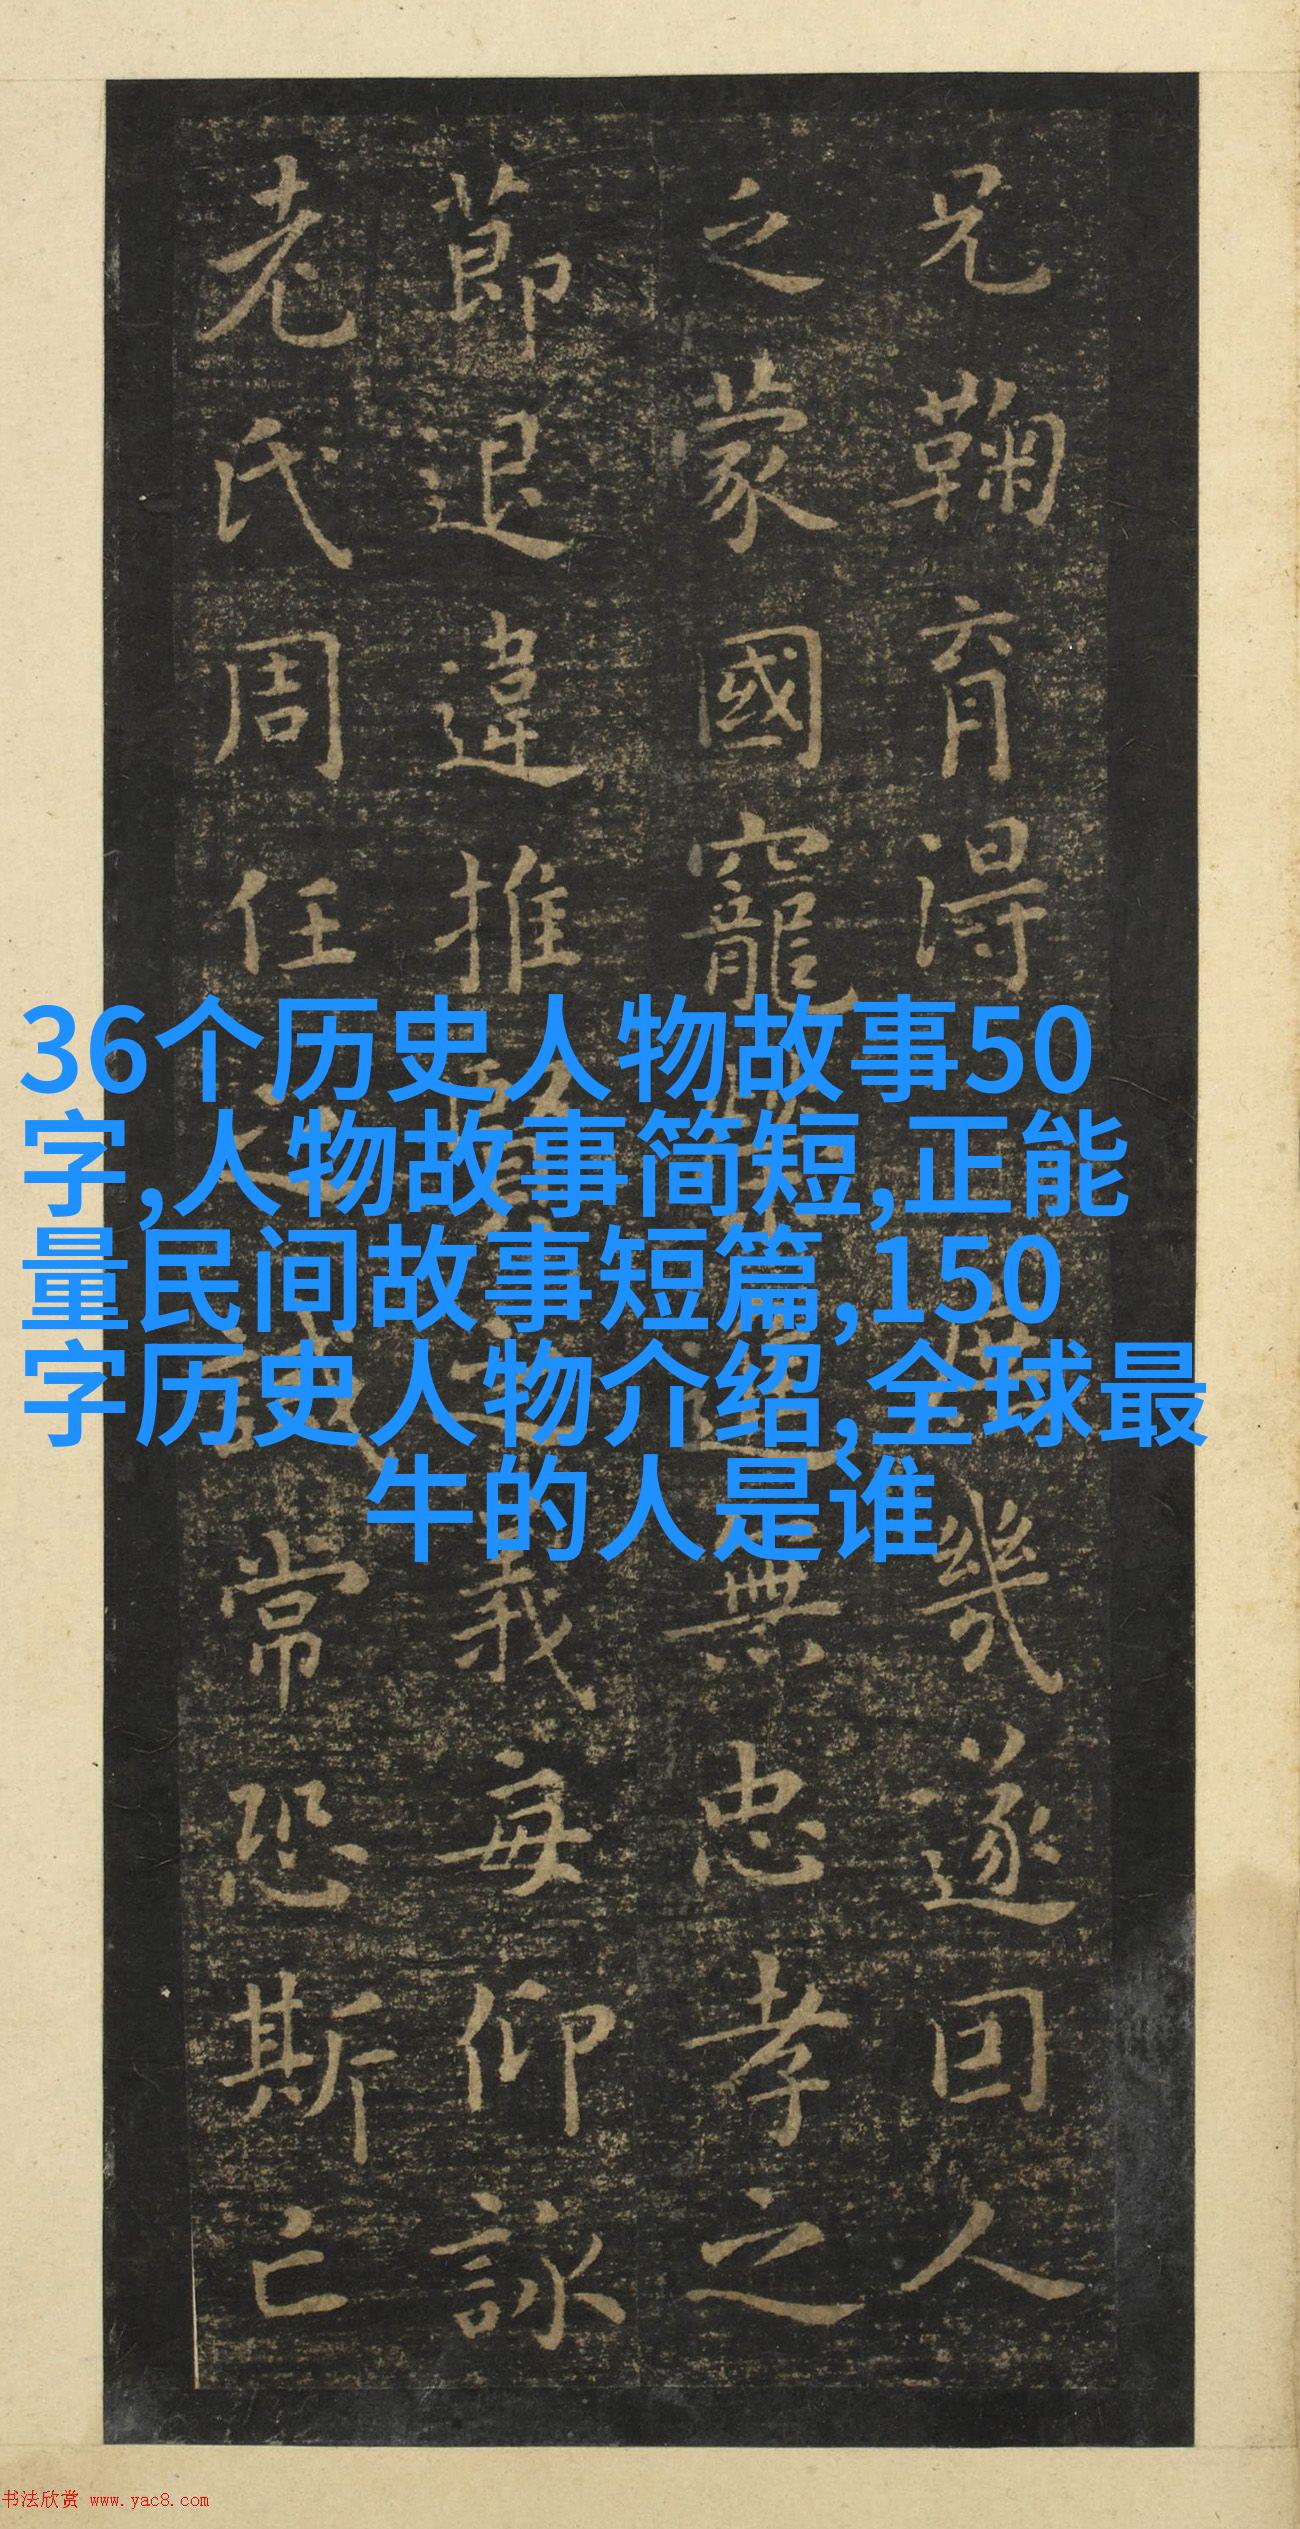 兄鞠育得庶幾遂因人
之蒙國寵榮進無忠孝之
莭退違推賢之義每仰詠
老氏周任之誡常恐斯亡
36个历史人物故事50
字,人物故事简短,正能
量民间故事短篇,150
字历史人物介绍,全球最
牛的人是谁
书法欣赏 www.yac8.com